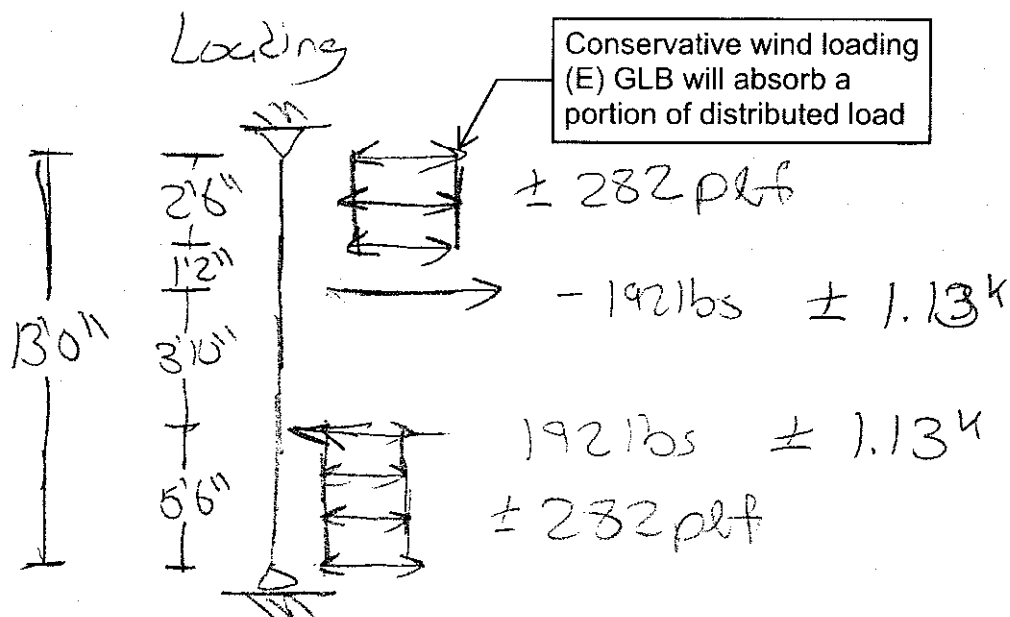 Loading
Conservative wind loading
(E) GLB will absorb a
portion of distributed load
2'6"
± 282 plf
1'2"
- 192 lbs ± 1.13k
13'0"
3'10"
192 lbs ± 1.13k
5'6"
± 282 plf